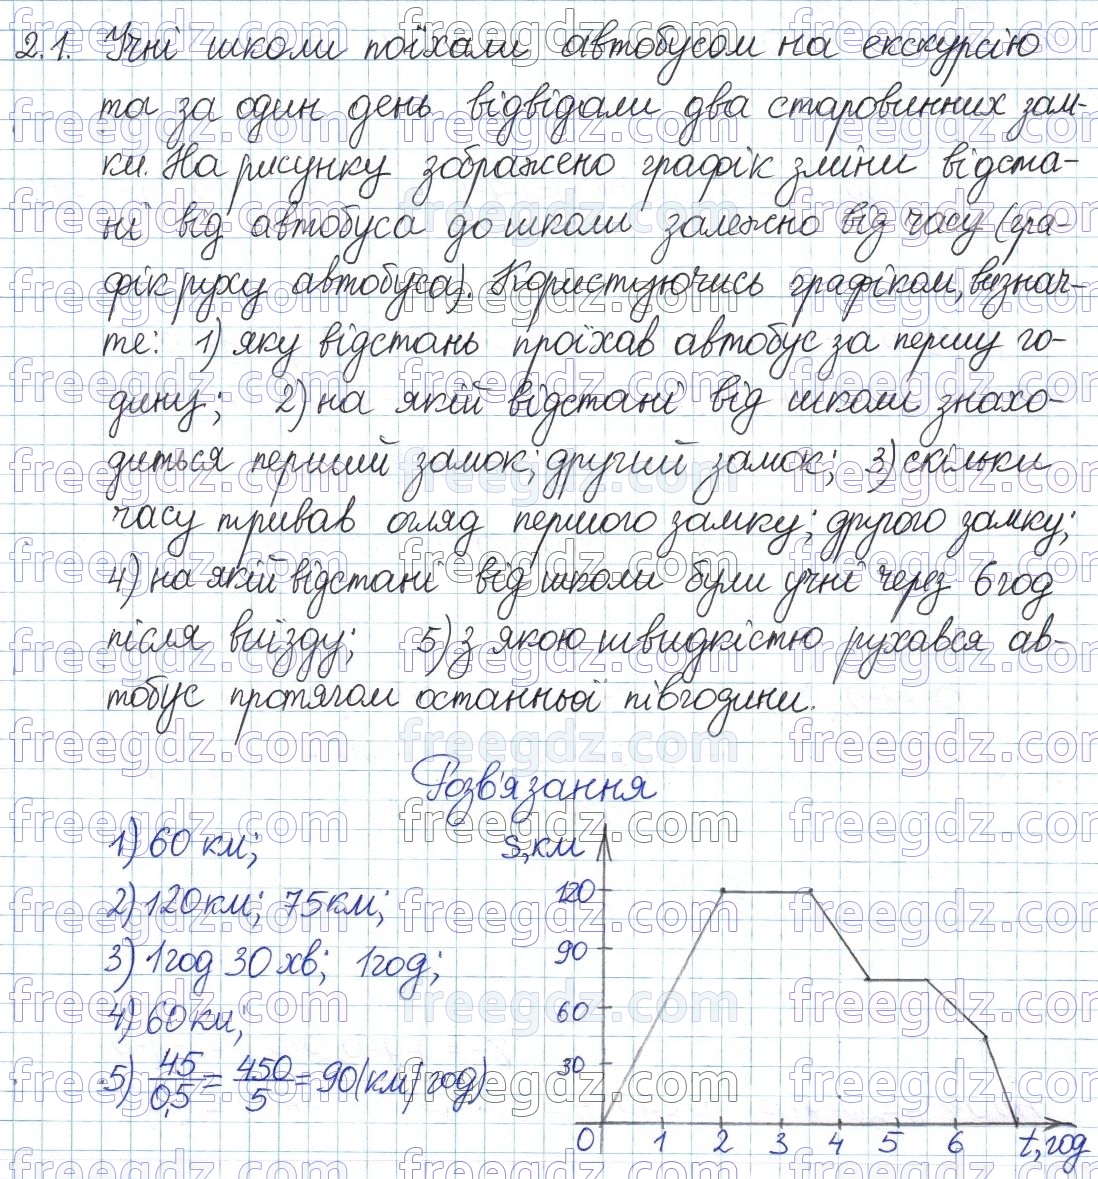 2.1. Учні школи поїхали автобусом на екскурсію
та за один день відвідали два старовинних зам-
ки. На рисунку зображено графік зміни відста-
ні від автобуса до школи залежно від часу (гра-
фік руху автобуса). Користуючись графіком, визнач-
те: 1) яку відстань проїхав автобус за першу го-
дину; 2) на якій відстані від школи знахо-
диться перший замок; другий замок; 3) скільки
часу тривав огляд першого замку; другого замку;
4) на якій відстані від школи були учні через 6 год
після виїзду; 5) з якою швидкістю рухався ав-
тобус протягом останньої півгодини.
Розв'язання
1) 60 км;
2) 120 км; 75 км;
3) 1 год 30 хв; 1 год;
4) 60 км;
5) 45/0,5 = 450/5 = 90 (км/год)
S, км
120
90
60
30
0 1 2 3 4 5 6 t, год
freegdz.com